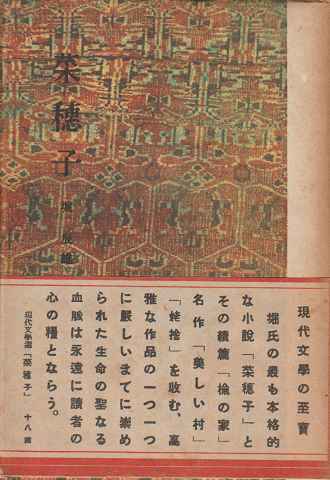 菜穂子
堀辰雄
現代文學の至寶
堀氏の最も本格的
な小説「菜穂子」と
その續篇「楡の家」
名作「美しい村」
「姨捨」を收む、高
雅な作品の一つ一つ
に嚴しいまでに崇め
られた生命の聖なる
血脈は永遠に讀者の
心の糧とならう。
現代文學選「菜穂子」 十八圓